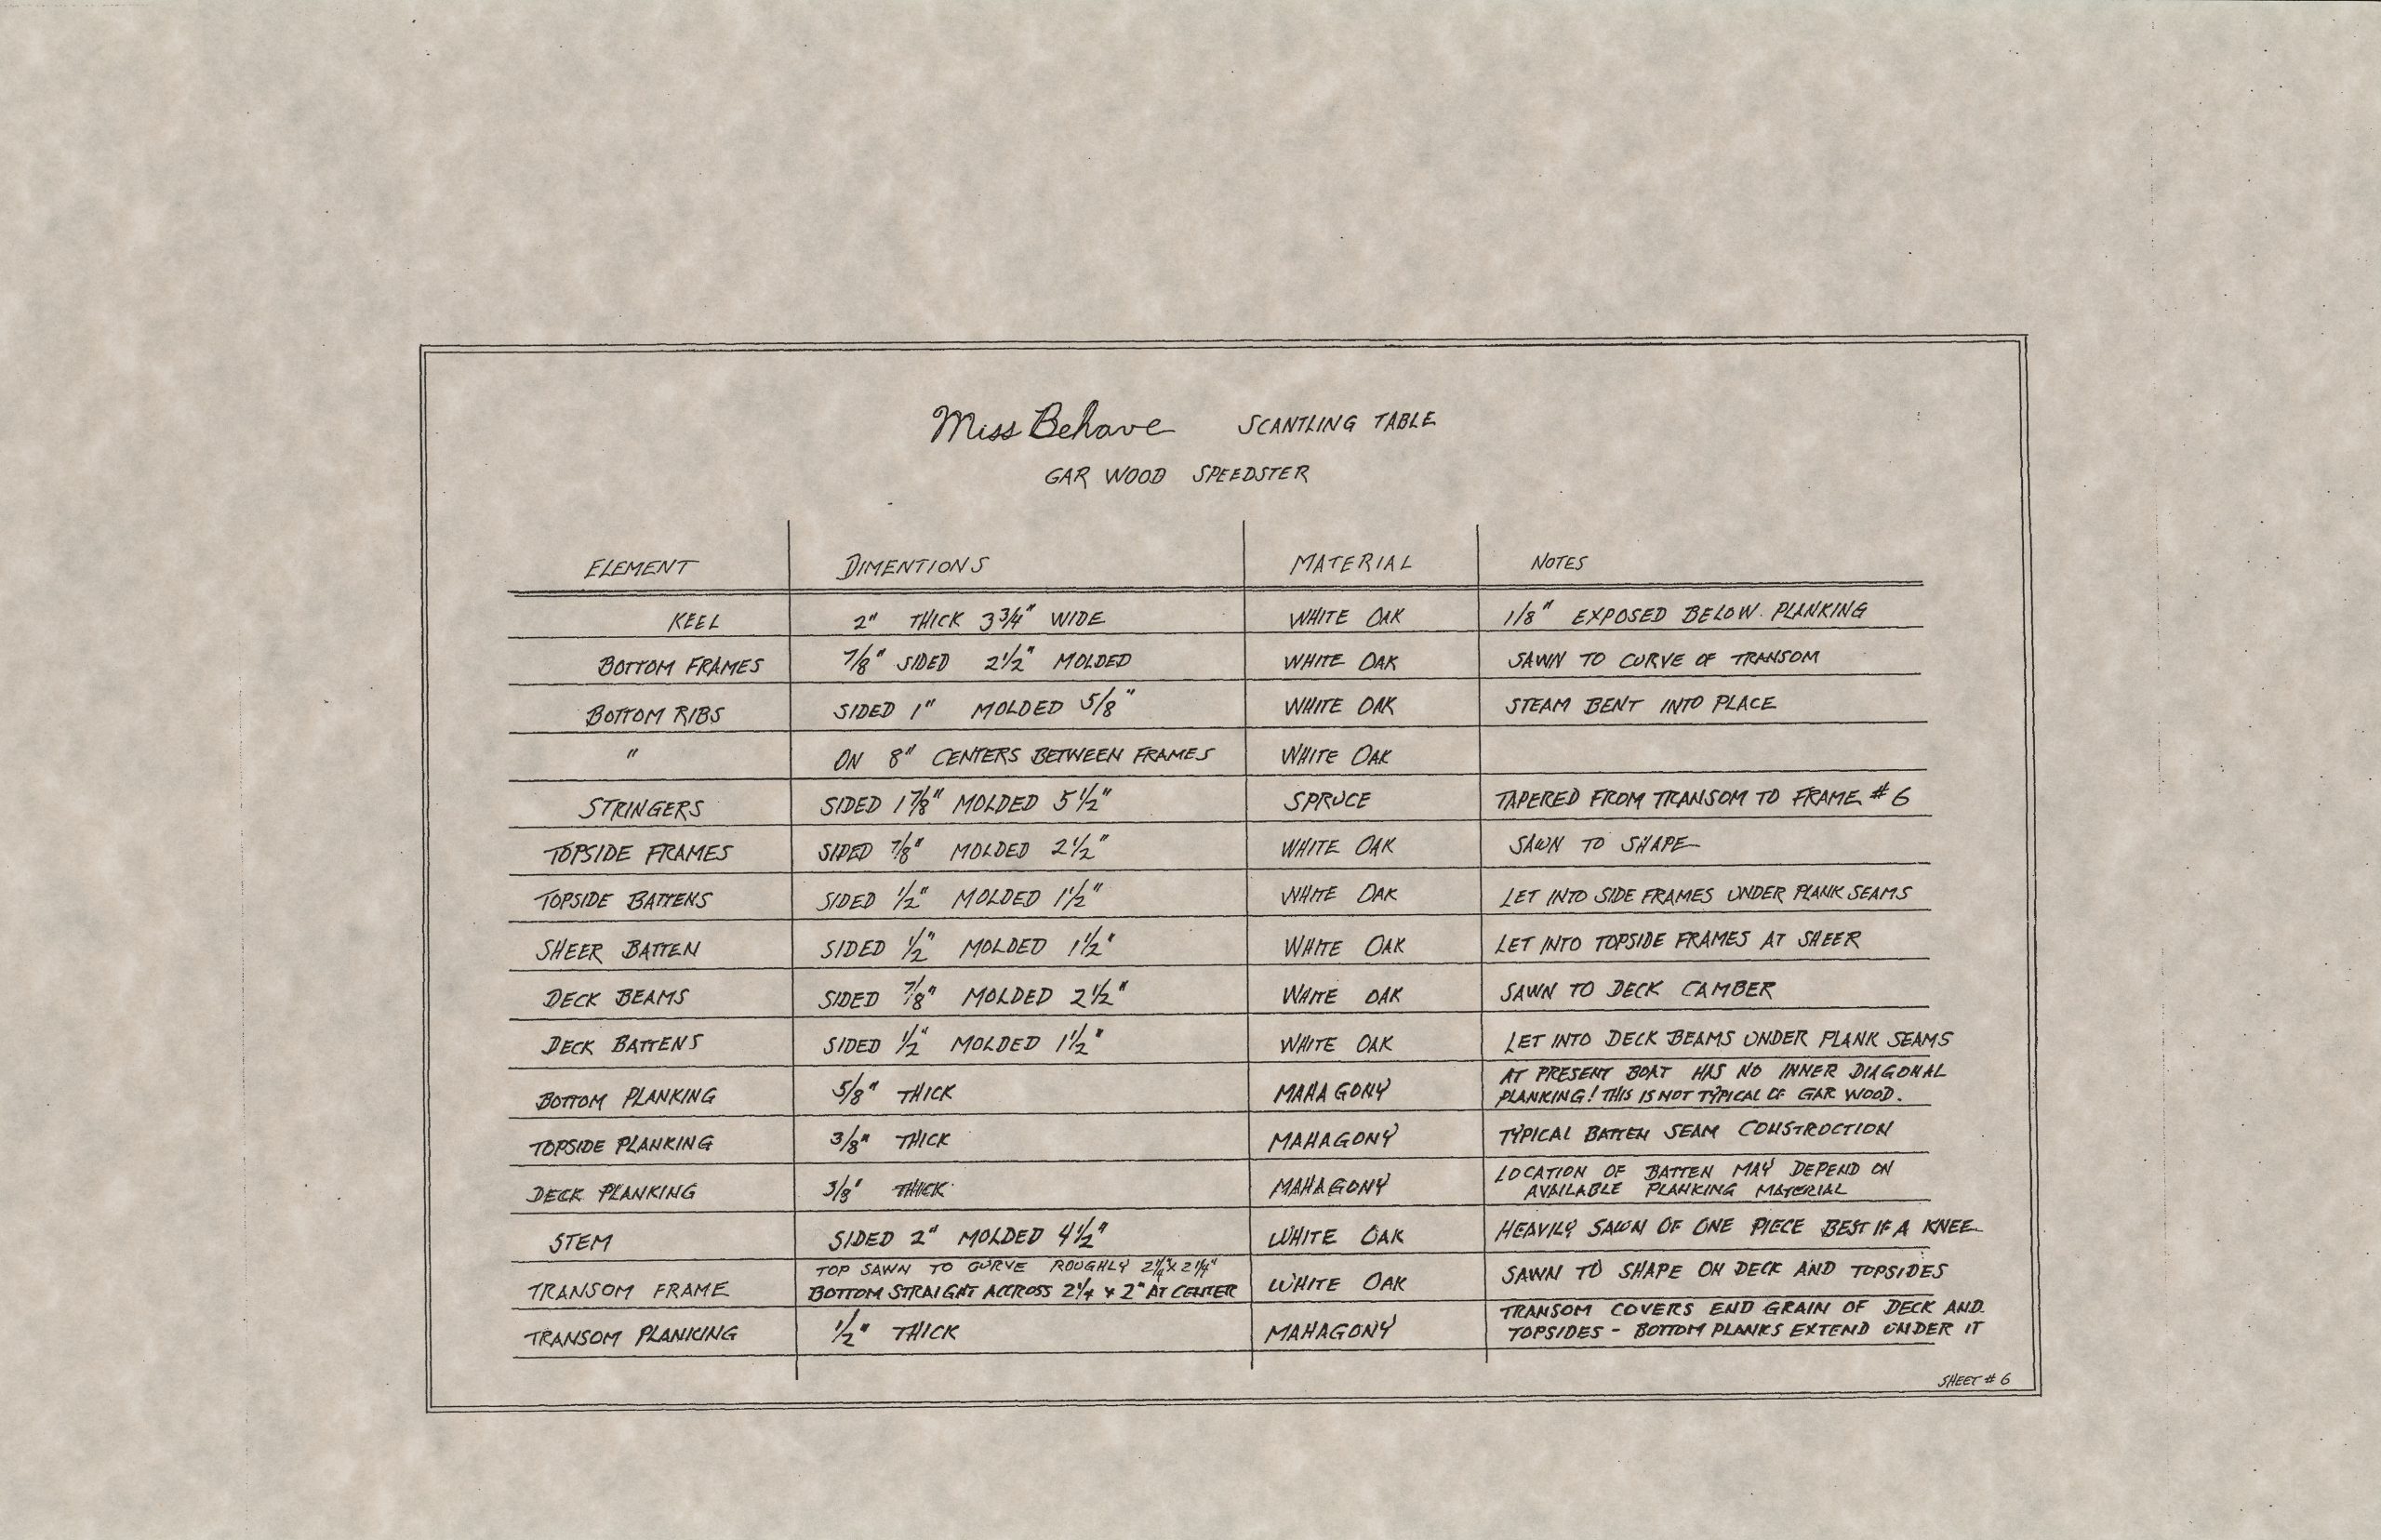 Miss Behave SCANTLING TABLE
GAR WOOD SPEEDSTER
ELEMENT DIMENTIONS MATERIAL NOTES
KEEL 2" THICK 3 3/4" WIDE WHITE OAK 1/8" EXPOSED BELOW PLANKING
BOTTOM FRAMES 7/8" SIDED 2 1/2" MOLDED WHITE OAK SAWN TO CURVE OF TRANSOM
BOTTOM RIBS SIDED 1" MOLDED 5/8" WHITE OAK STEAM BENT INTO PLACE
" ON 8" CENTERS BETWEEN FRAMES WHITE OAK
STRINGERS SIDED 1 7/8" MOLDED 5 1/2" SPRUCE TAPERED FROM TRANSOM TO FRAME #6
TOPSIDE FRAMES SIDED 7/8" MOLDED 2 1/2" WHITE OAK SAWN TO SHAPE
TOPSIDE BATTENS SIDED 1/2" MOLDED 1 1/2" WHITE OAK LET INTO SIDE FRAMES UNDER PLANK SEAMS
SHEER BATTEN SIDED 1/2" MOLDED 1 1/2" WHITE OAK LET INTO TOPSIDE FRAMES AT SHEER
DECK BEAMS SIDED 7/8" MOLDED 2 1/2" WHITE OAK SAWN TO DECK CAMBER
DECK BATTENS SIDED 1/2" MOLDED 1 1/2" WHITE OAK LET INTO DECK BEAMS UNDER PLANK SEAMS
BOTTOM PLANKING 5/8" THICK MAHAGONY AT PRESENT BOAT HAS NO INNER DIAGONAL
PLANKING! THIS IS NOT TYPICAL OF GAR WOOD.
TOPSIDE PLANKING 3/8" THICK MAHAGONY TYPICAL BATTEN SEAM CONSTRUCTION
DECK PLANKING 3/8" THICK MAHAGONY LOCATION OF BATTEN MAY DEPEND ON
AVAILABLE PLANKING MATERIAL
STEM SIDED 2" MOLDED 4 1/2" WHITE OAK HEAVILY SAWN OF ONE PIECE BEST IF A KNEE
TRANSOM FRAME TOP SAWN TO CURVE ROUGHLY 2 1/4" x 2 1/4"
BOTTOM STRAIGHT ACCROSS 2 1/4 x 2" AT CENTER WHITE OAK SAWN TO SHAPE ON DECK AND TOPSIDES
TRANSOM PLANKING 1/2" THICK MAHAGONY TRANSOM COVERS END GRAIN OF DECK AND
TOPSIDES - BOTTOM PLANKS EXTEND UNDER IT
SHEET #6